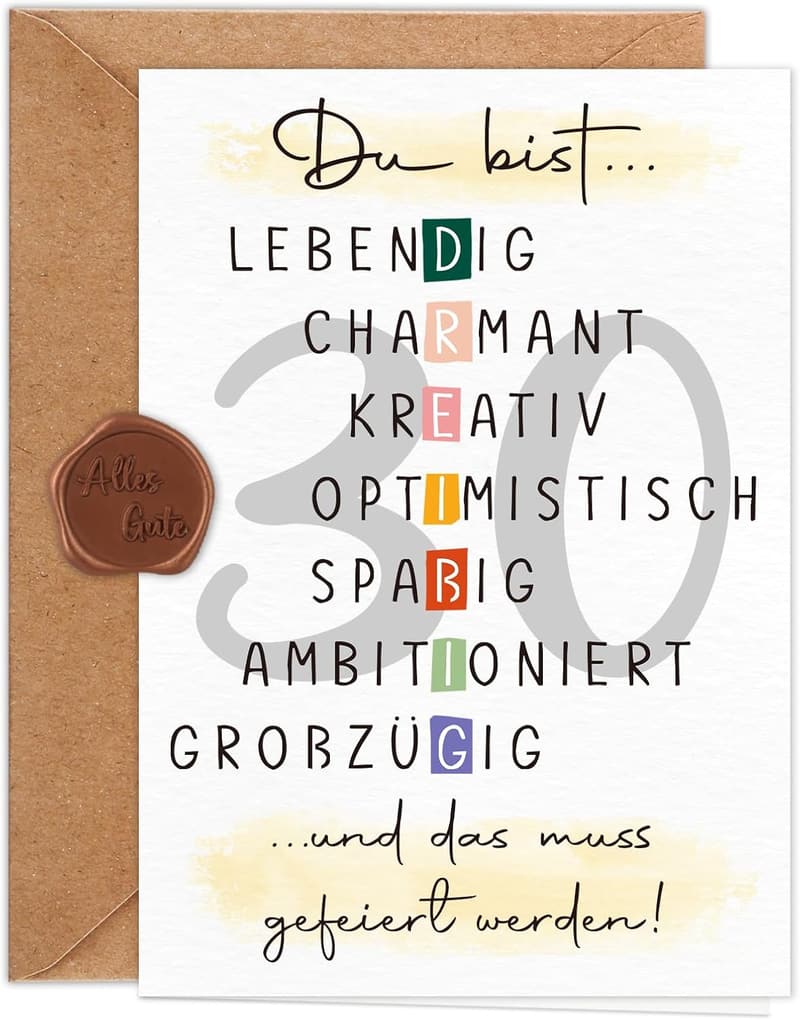 Du bist...
LEBENDIG
CHARMANT
KREATIV
30
OPTIMISTISCH
SPAßIG
AMBITIONIERT
GROßZÜGIG
...und das muss
gefeiert werden!
Alles
Gute